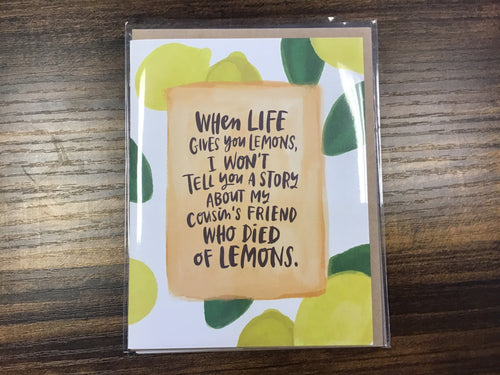 WHEN LIFE
GIVES YOU LEMONS,
I WON'T
TELL YOU A STORY
ABOUT MY
COUSIN'S FRIEND
WHO DIED
OF LEMONS.